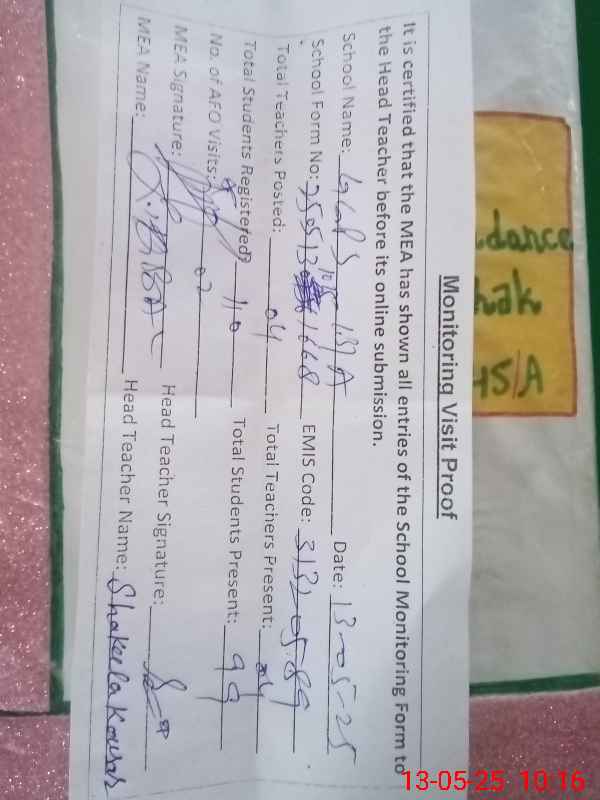 Monitoring Visit Proof
It is certified that the MEA has shown all entries of the School Monitoring Form to
the Head Teacher before its online submission.
School Name: Date: 13-05-25
School Form No: EMIS Code: 31320589
Total Teachers Posted: 04 Total Teachers Present: 04
Total Students Registered: 110 Total Students Present: 99
No. of AFO Visits: 02
MEA Signature: Head Teacher Signature:
MEA Name: Head Teacher Name: Shakeela Kousar
dance
hak
45/A
13-05-25 10:16